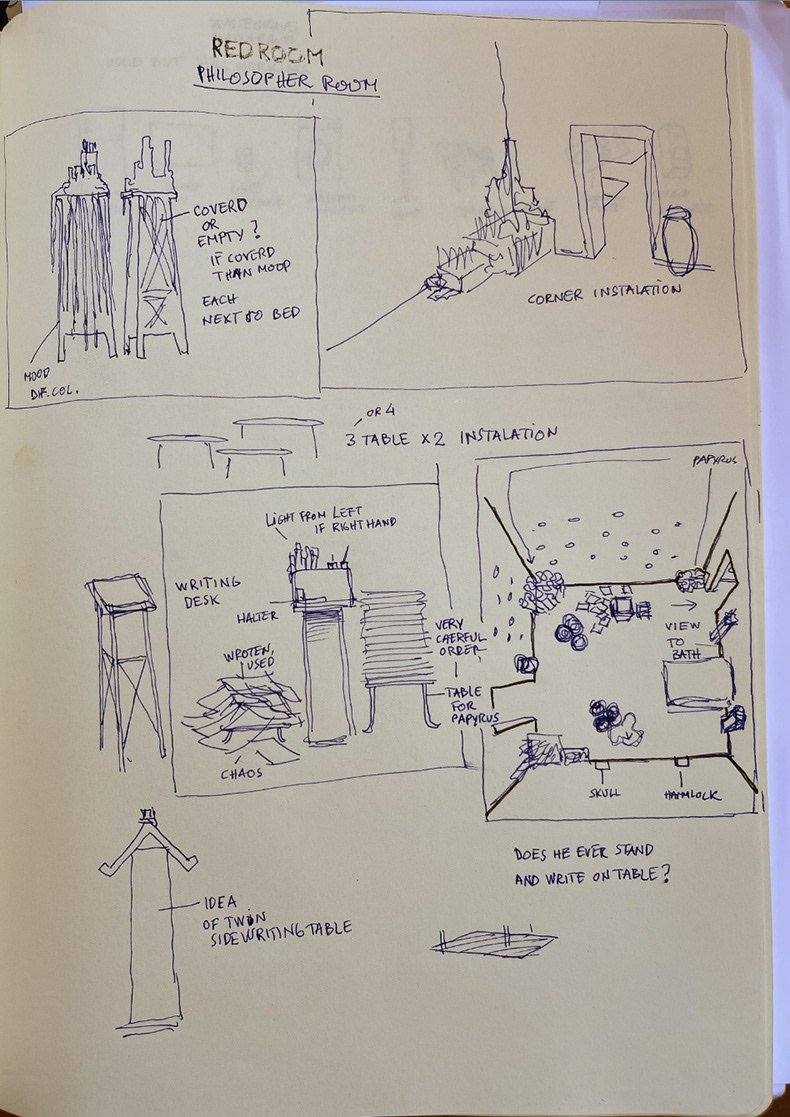 RED ROOM
PHILOSOPHER ROOM
COVERD
OR
EMPTY?
IF COVERD
THAN MOOD
EACH
NEXT TO BED
MOOD
DIF. COL.
CORNER INSTALATION
OR 4
3 TABLE X2 INSTALATION
PAPYRUS
LIGHT FROM LEFT
IF RIGHT HAND
WRITING
DESK
HALTER
WROTEN,
USED
VERY
CAERFUL
ORDER
TABLE
FOR
PAPYRUS
CHAOS
VIEW
TO
BATH
SKULL
HAMLOCK
DOES HE EVER STAND
AND WRITE ON TABLE?
IDEA
OF TWIN
SIDE WRITING TABLE